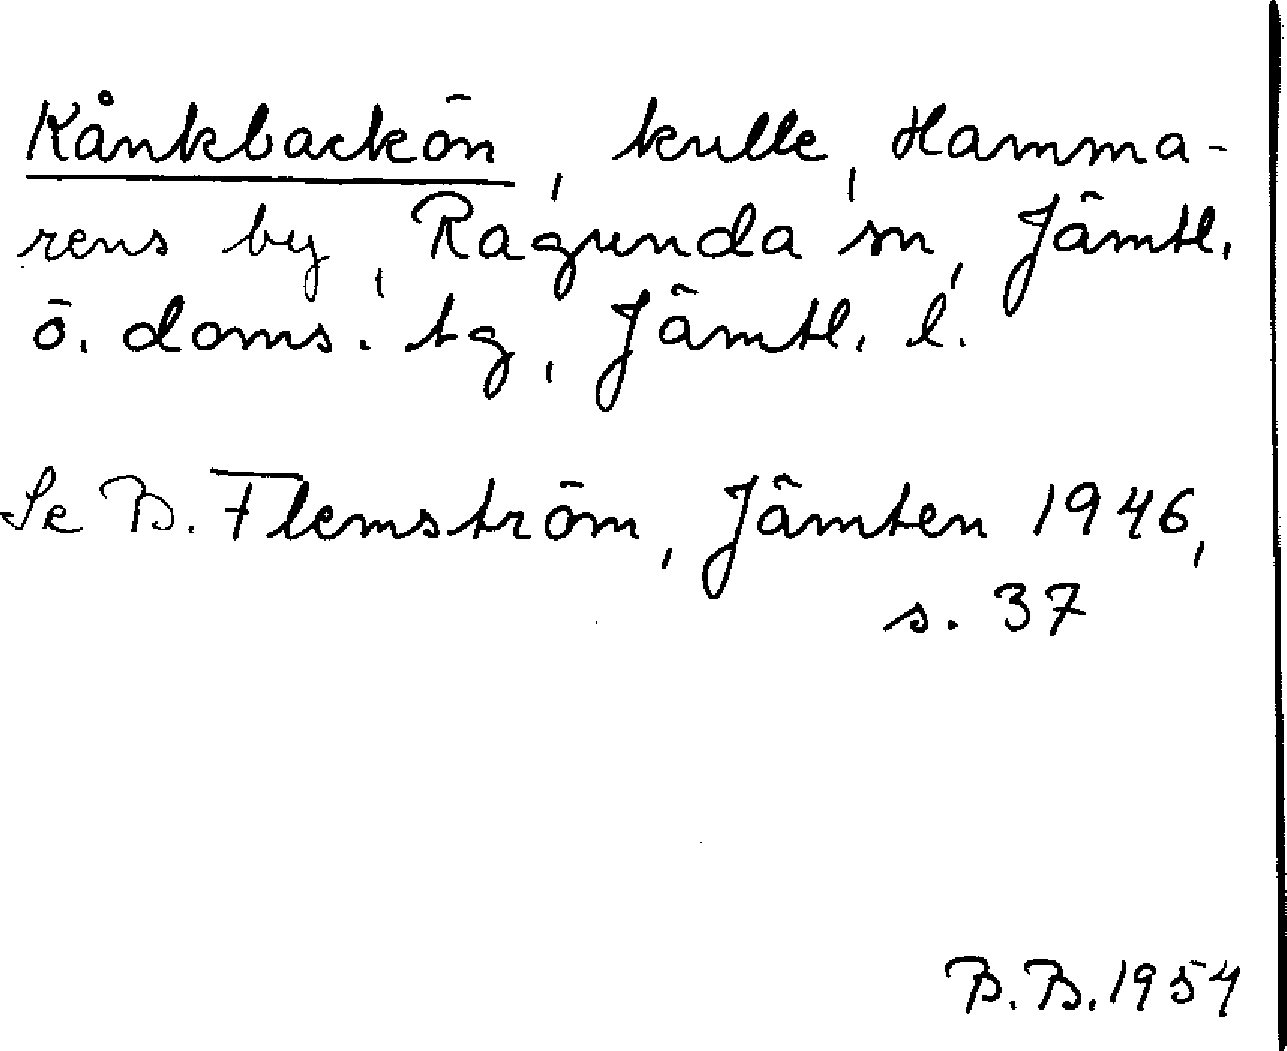 Kånkbackön, kulle, Hamma-
rens by, Ragunda sn, Jämtl.
ö. doms. tg, Jämtl. l.
Se B. Flemström, Jämten 1946,
s. 37
B. B. 1954